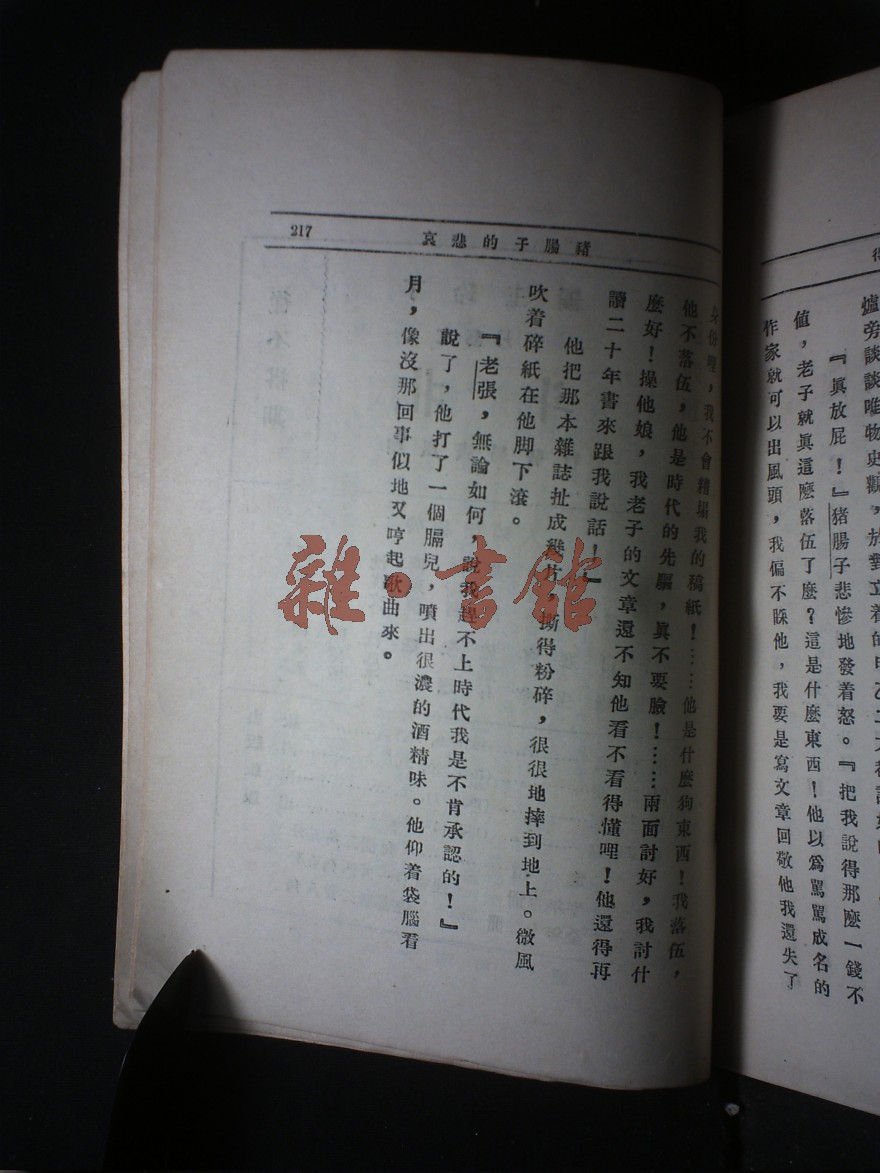 爐旁談談唯物史觀，
『眞放屁！』猪腸子悲慘地發着怒。『把我說得那麽一錢不
值，老子就眞這麽落伍了麽？這是什麽東西！他以爲罵罵成名的
作家就可以出風頭，我偏不睬他，我要是寫文章回敬他我還失了
猪腸子的悲哀
217
身份哩，我不會糟塌我的稿紙！……他是什麽狗東西！我落伍，
他不落伍，他是時代的先驅，眞不要臉！……兩面討好，我討什
麽好！操他娘，我老子的文章還不知他看不看得懂哩！他還得再
讀二十年書來跟我說話！』
他把那本雜誌扯成幾片，撕得粉碎，很很地摔到地上。微風
吹着碎紙在他脚下滾。
『老張，無論如何，說我趕不上時代我是不肯承認的！』
說了，他打了一個膈兒，噴出很濃的酒精味。他仰着袋腦看
月，像沒那回事似地又哼起歌曲來。
雜·書館